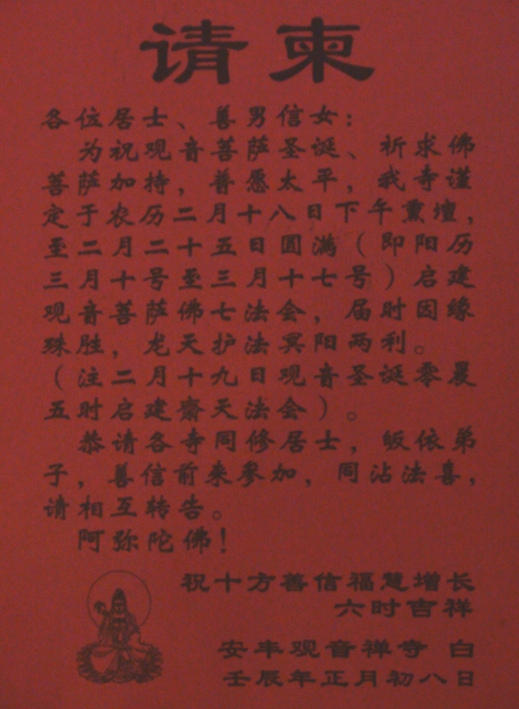 请柬
各位居士、善男信女：
为祝观音菩萨圣诞、祈求佛
菩萨加持，普愿太平，我寺谨
定于农历二月十八日下午熏坛，
至二月二十五日圆满（即阳历
三月十号至三月十七号）启建
观音菩萨佛七法会，届时因缘
殊胜，龙天护法冥阳两利。
（注二月十九日观音圣诞零晨
五时启建斋天法会）。
恭请各寺同修居士，皈依弟
子，善信前来参加，同沾法喜，
请相互转告。
阿弥陀佛！
祝十方善信福慧增长
六时吉祥
安丰观音禅寺 白
壬辰年正月初八日